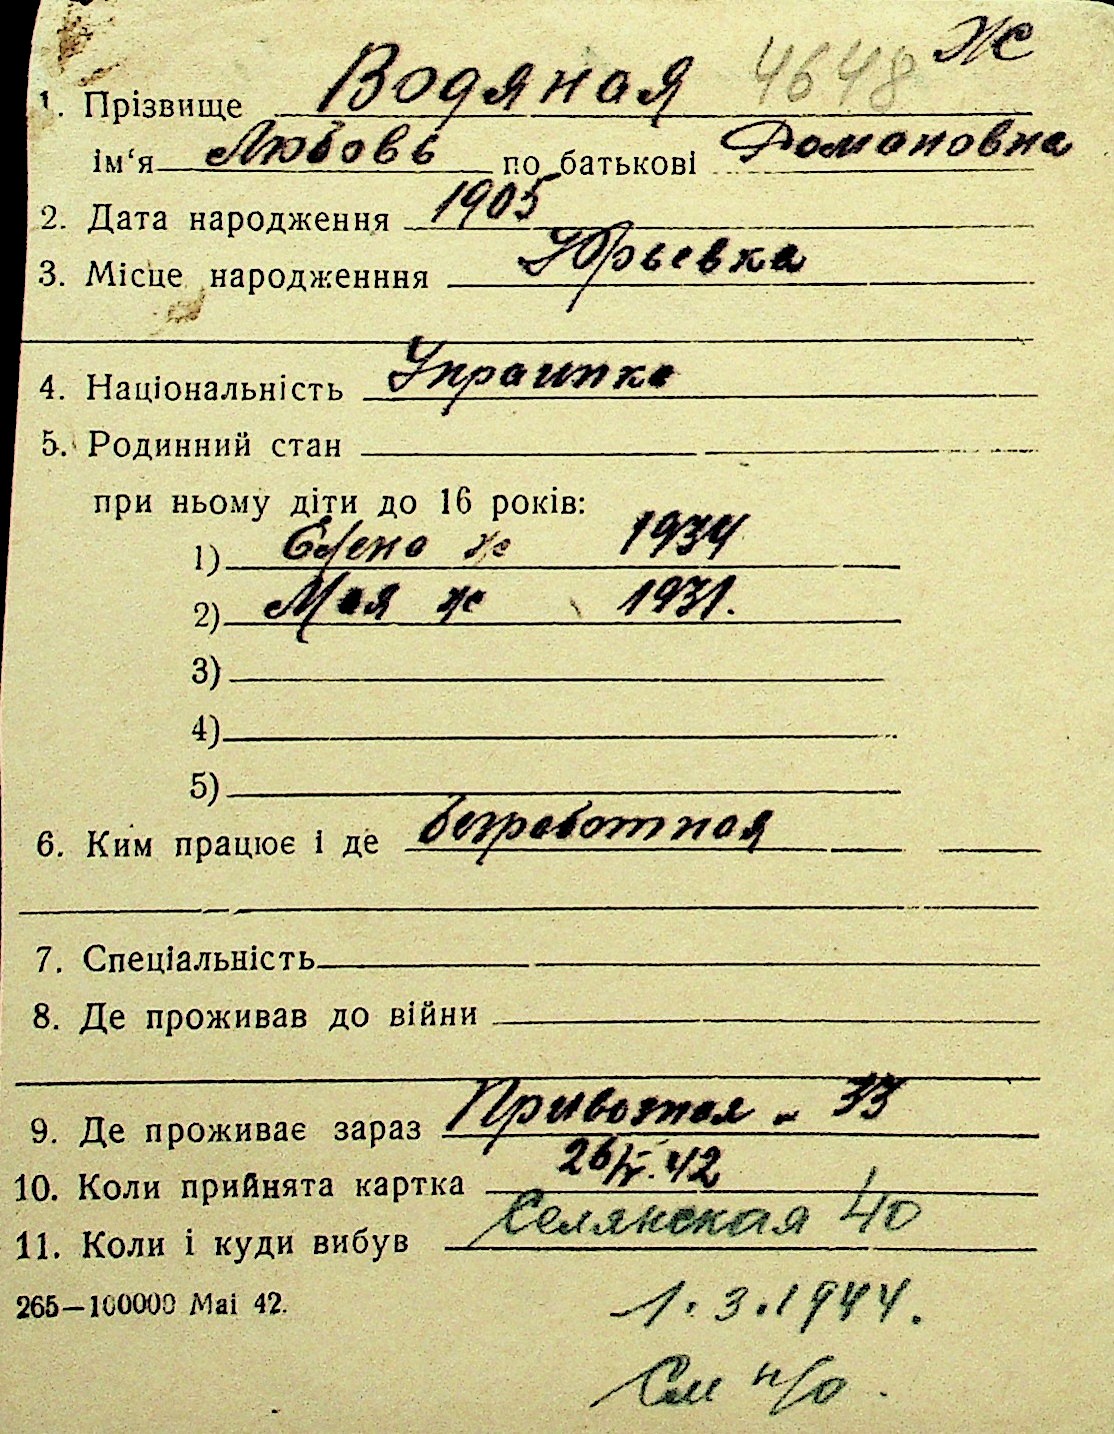 Ж
1. Прізвище Водяная 4648
ім‘я Любовь по батькові Домановна
2. Дата народження 1905
3. Місце народженння Юрьевка
4. Національність Украинка
5. Родинний стан
при ньому діти до 16 років:
1) Елена ж 1934
2) Мая ж 1931.
3)
4)
5)
6. Ким працює і де безработная
7. Спеціальність
8. Де проживав до війни
9. Де проживає зараз Привозная - 33
10. Коли прийнята картка 26/V.42
11. Коли і куди вибув Селянская 40
265—100000 Mai 42.
1.3.1944.
См н/о.